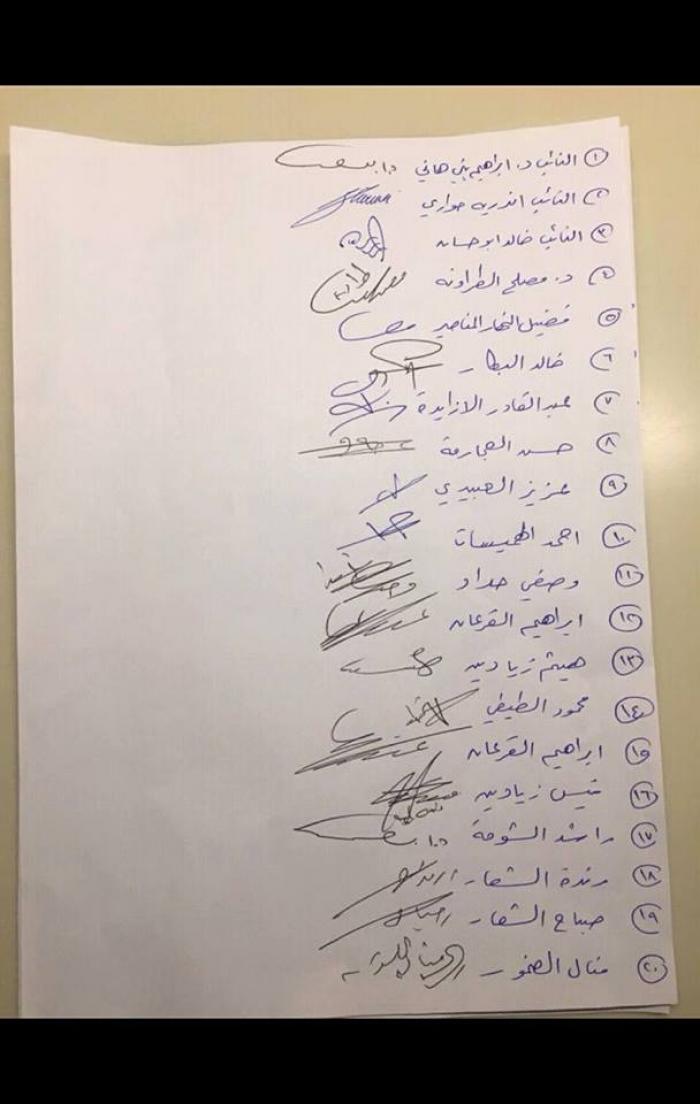 ١ النائب د. ابراهيم بني هاني
٢ النائب اندريه حواري
٣ النائب خالد ابو حسان
٤ د. مصلح الطراونه
٥ فضيل النهار المناصير
٦ خالد البطار
٧ عبد القادر الازايدة
٨ حسن العجارمة
٩ عزيز العبيدي
١٠ احمد الهميسات
١١ وصفي حداد
١٢ ابراهيم القرعان
١٣ هيثم زيادين
١٤ محمود الطيطي
١٥ ابراهيم القرعان
١٦ قيس زيادين
١٧ راشد الشوحة
١٨ رندة الشعار
١٩ صباح الشعار
٢٠ منال الصخور